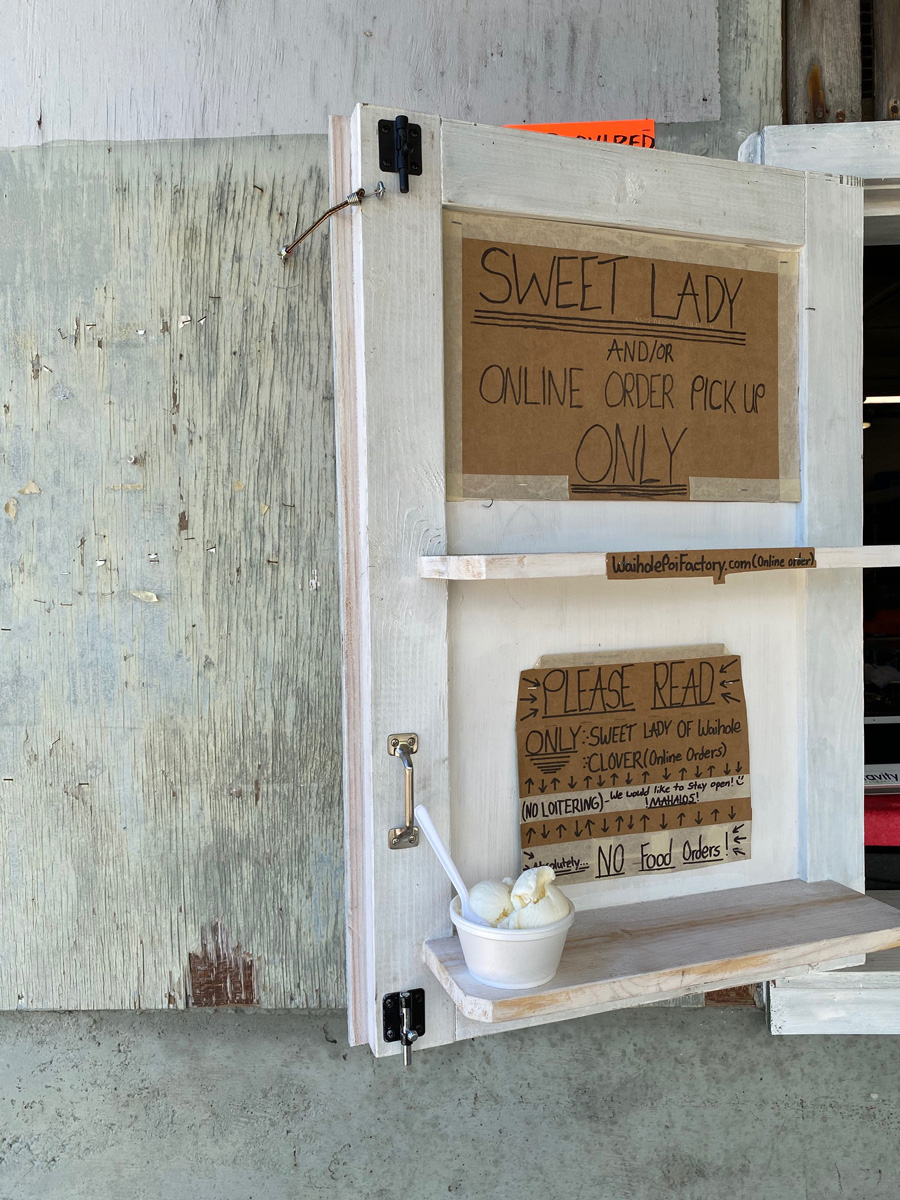 SWEET LADY
AND/OR
ONLINE ORDER PICK UP
ONLY
WaiholePoiFactory.com (Online order)
PLEASE READ
ONLY: SWEET LADY OF Waihole
: CLOVER (Online Orders)
(NO LOITERING) - We would like to Stay open!
!MAHALOS!
Absolutely... NO Food Orders!
avity